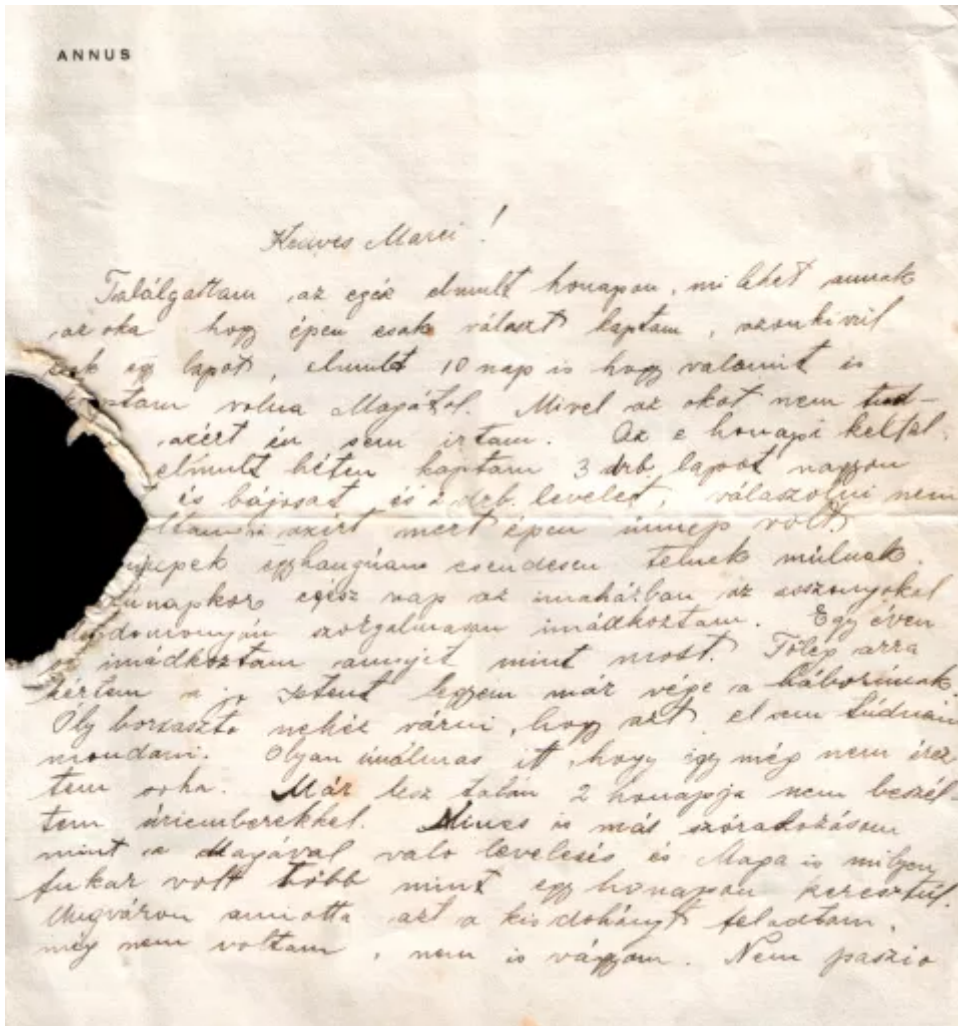 ANNUS
Kedves Marci!
Találgattam az egész elmult honapon, mi lehet annak
az oka hogy épen csak választ kaptam, azonkivül
csak egy lapot, elmult 10 nap is hogy valamit is
kaptam volna Magától. Mivel az okot nem tud-
azért én sem irtam. Az e honapi
elmult héten kaptam 3 drb. lapot nagyon
és bájosat és 2 drb. levelet, válaszolni nem
azért mert épen ünnep volt.
egyhanguan csendesen telnek múlnak.
egész nap az imaházban az asszonyokal
szorgalmasan imádkoztam. Egy éven
imádkoztam annyit mint most. Főleg arra
kértem a jo Istent legyen már vége a háborúnak.
Oly borzaszto nehéz várni, hogy azt el sem tudnám
mondani. Olyan unalmas itt, hogy igy még nem érez
tem soha. Már lesz talán 2 honapja nem beszél-
tem úriemberekkel. Nincs is más szórakozásom
mint a Magával valo levelezés és Maga is milyen
fukar volt több mint egy honapon keresztül.
Ungváron amiotta azt a kis dohányt feladtam,
még nem voltam, nem is vágyom. Nem paszio